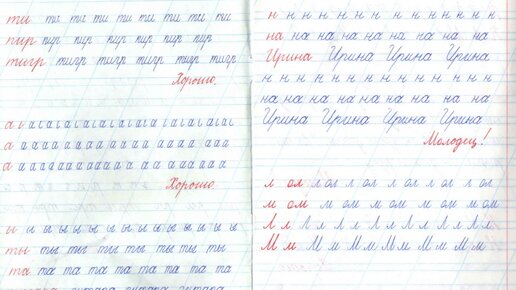 ти ти ти ти ти ти ти ти
пир пир пир пир пир пир пир
тигр тигр тигр тигр тигр тигр
Хорошо.
а а а а а а а а а а а а а а а а
а а а а а а а а а а а а а а а а
Хорошо
ы ы ы ы ы ы ы ы ы ы ы
ты ты ты ты ты ты ты ты
та та та та та та та та та
н н н н н н н н н н н н н н
на на на на на на на на на
Ирина Ирина Ирина Ирина
н н н н н н н н н н н н н н
на на на на на на на на на
Ирина Ирина Ирина Ирина
Молодец!
л ол л ол л ол л ол л ол
м ом м ом м ом м ом м ом
Л л Л л Л л Л л Л л Л л
М м М м М м М м М м М м